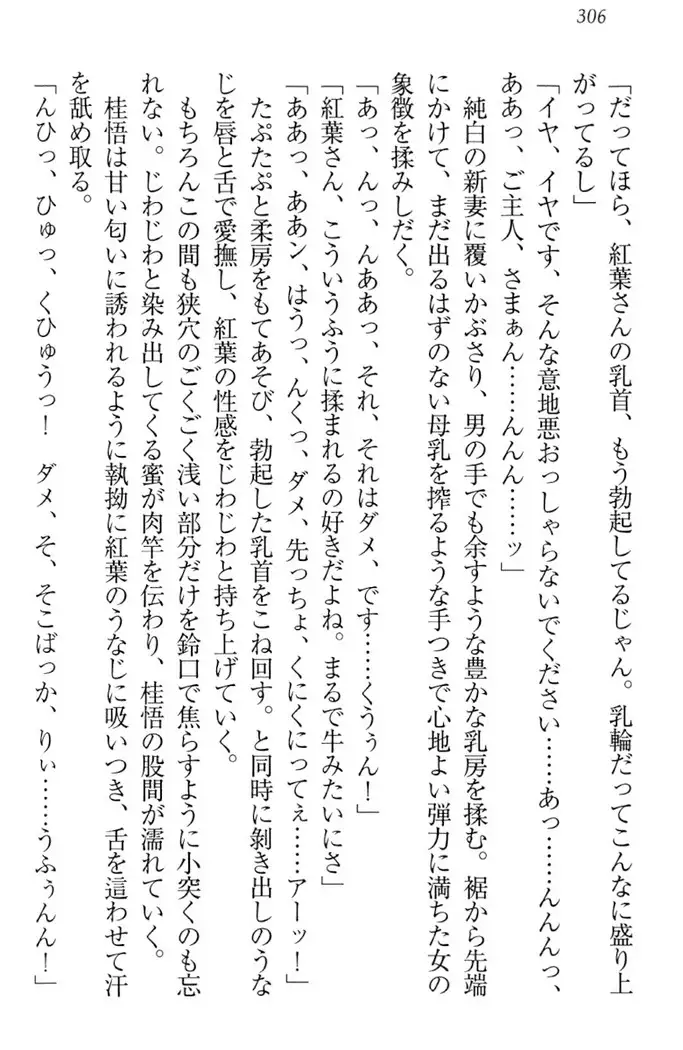 306
「だってほら、紅葉さんの乳首、もう勃起してるじゃん。乳輪だってこんなに盛り上
がってるし」
「イヤ、イヤです、そんな意地悪おっしゃらないでください……あっ……んんんっ、
ああっ、ご主人、さまぁん……んんん……ッ」
純白の新妻に覆いかぶさり、男の手でも余すような豊かな乳房を揉む。裾から先端
にかけて、まだ出るはずのない母乳を搾るような手つきで心地よい弾力に満ちた女の
象徴を揉みしだく。
「あっ、んっ、んああっ、それ、それはダメ、です……くうぅん！」
「紅葉さん、こういうふうに揉まれるの好きだよね。まるで牛みたいにさ」
「ああっ、ああン、はうっ、んくっ、ダメ、先っちょ、くにくにってぇ……アーッ！」
たぷたぷと柔房をもてあそび、勃起した乳首をこね回す。と同時に剝き出しのうな
じを唇と舌で愛撫し、紅葉の性感をじわじわと持ち上げていく。
もちろんこの間も狭穴のごくごく浅い部分だけを鈴口で焦らすように小突くのも忘
れない。じわじわと染み出してくる蜜が肉竿を伝わり、桂悟の股間が濡れていく。
桂悟は甘い匂いに誘われるように執拗に紅葉のうなじに吸いつき、舌を這わせて汗
を舐め取る。
「んひっ、ひゅっ、くひゅうっ！　ダメ、そ、そこばっか、りぃ……うふぅんん！」